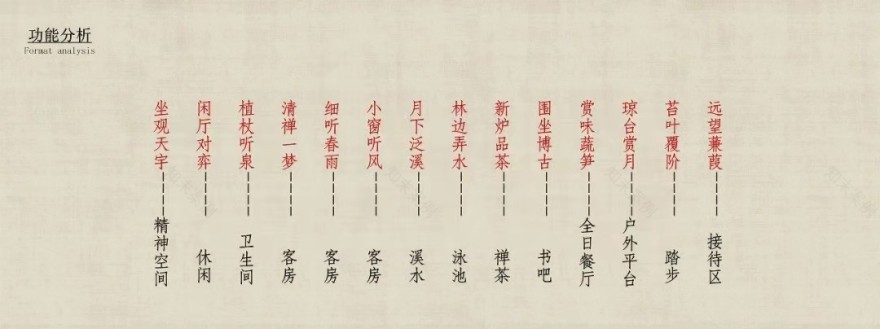 功能分析
Format analysis
坐观天宇-----精神空间
闲厅对弈-----休闲
植杖听泉-----卫生间
清禅一梦-----客房
细听春雨-----客房
小窗听风-----客房
月下泛溪-----溪水
林边弄水-----泳池
新炉品茶-----禅茶
围坐博古-----书吧
赏味蔬笋-----全日餐厅
琼台赏月-----户外平台
苔叶覆阶-----踏步
远望蒹葭-----接待区